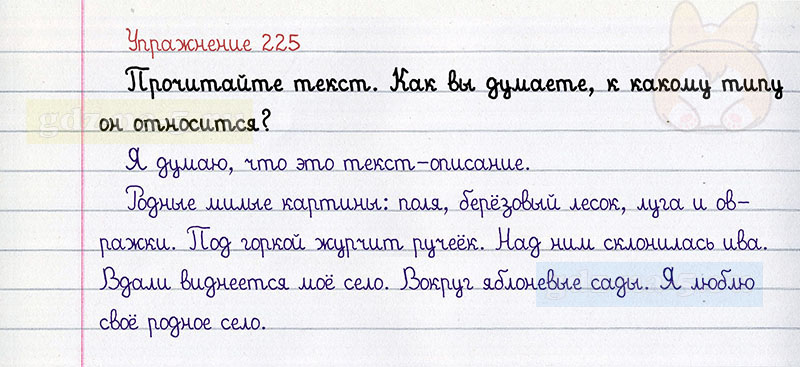 Упражнение 225
Прочитайте текст. Как вы думаете, к какому типу
он относится?
Я думаю, что это текст-описание.
Родные милые картины: поля, берёзовый лесок, луга и ов-
ражки. Под горкой журчит ручеёк. Над ним склонилась ива.
Вдали виднеется моё село. Вокруг яблоневые сады. Я люблю
своё родное село.